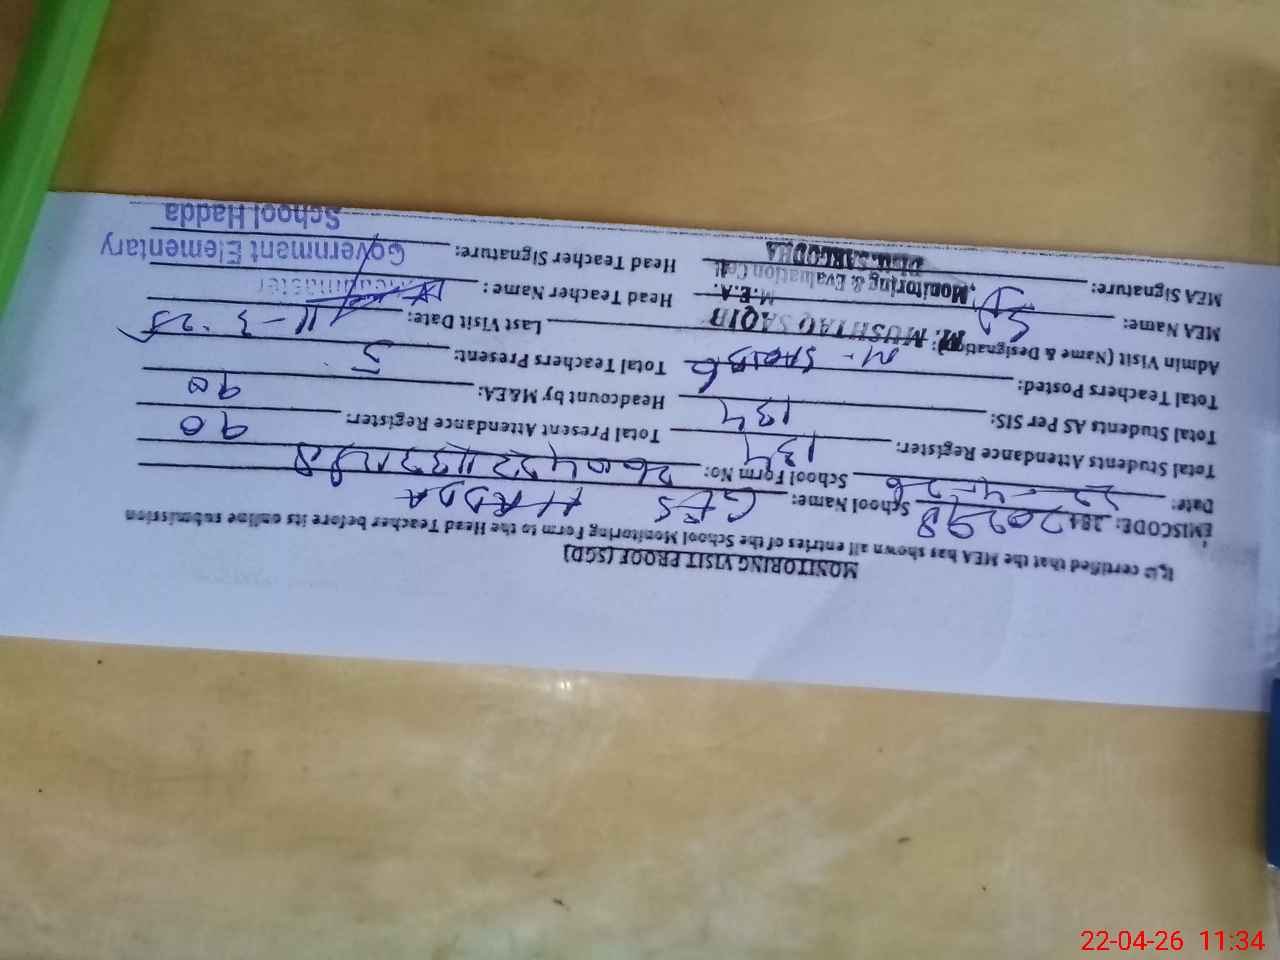 MONITORING VISIT PROOF (SGD)
It is certified that the MEA has shown all entries of the School Monitoring Form to the Head Teacher before its online submission
EMISCODE: 384 20298 School Name: GES HADDA
Date: 22-4-26 School Form No:
Total Students Attendance Register: 134 Total Present Attendant Register: 90
Total Students AS Per SIS: 134 Headcount by M&EA: 90
Total Teachers Posted: 6 Total Teachers Present: 5
Admin Visit (Name & Designation): Last Visit Date: 11-3-25
MEA Name: M. MUSHTAQ SAQIB Head Teacher Name: Headmaster
M.E.A.
MEA Signature: Monitoring & Evaluation Cell Head Teacher Signature: Government Elementary
Distt. SARGODHA School Hadda
22-04-26 11:34